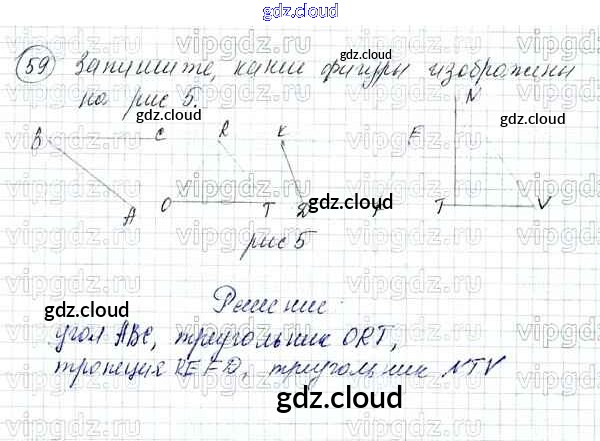 gdz.cloud
59 Запишите, какие фигуры изображены
на рис 5.
N
B C R K E
A O T D F T V
рис 5
Решение
угол ABC, треугольник ORT,
трапеция KEFD, треугольник NTV
gdz.cloud
gdz.cloud
gdz.cloud
gdz.cloud
gdz.cloud
gdz.cloud
gdz.cloud
vipgdz.ru